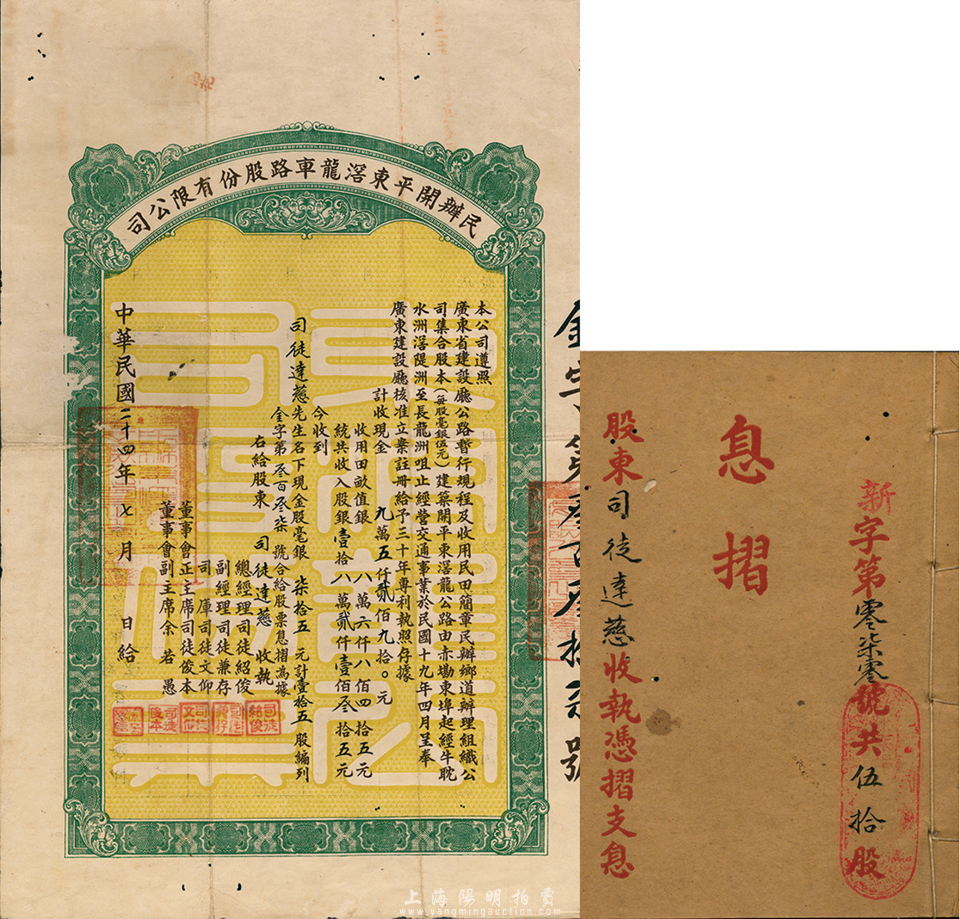 民辦開平東滘龍車路股份有限公司
本公司遵照
廣東省建設廳公路暫行規程及收用民田簡章民辦鄉道辦理組織公
司集合股本(每股毫銀伍元)建築開平東滘龍公路由赤墈東埠起經牛𦕎
水洲滘隄洲至長龍洲咀止經營交通事業於民國十九年四月呈奉
廣東建設廳核准立案註冊給予三十年專利執照存據
計收現金 九萬五仟貳佰九拾○元
收用田畝值銀 八萬六仟八佰四拾五元
統共收入股銀壹拾八萬貳仟壹佰叁拾五元
今收到
司徒達慈先生名下現金股毫銀 柒拾五 元計壹拾五股編列
金字第 叁百叁柒 號合給股票息摺為據
右給股東 司徒達慈 收執
總經理司徒紹俊
副經理司徒兼存
司庫司徒文仰
董事會正主席司徒俊本
董事會副主席余若愚
中華民國二十四年七月 日給
新字第零柒零號共伍拾股
息摺
股東司徒達慈收執憑摺支息
上海陽明拍賣
www.yangmingauction.com